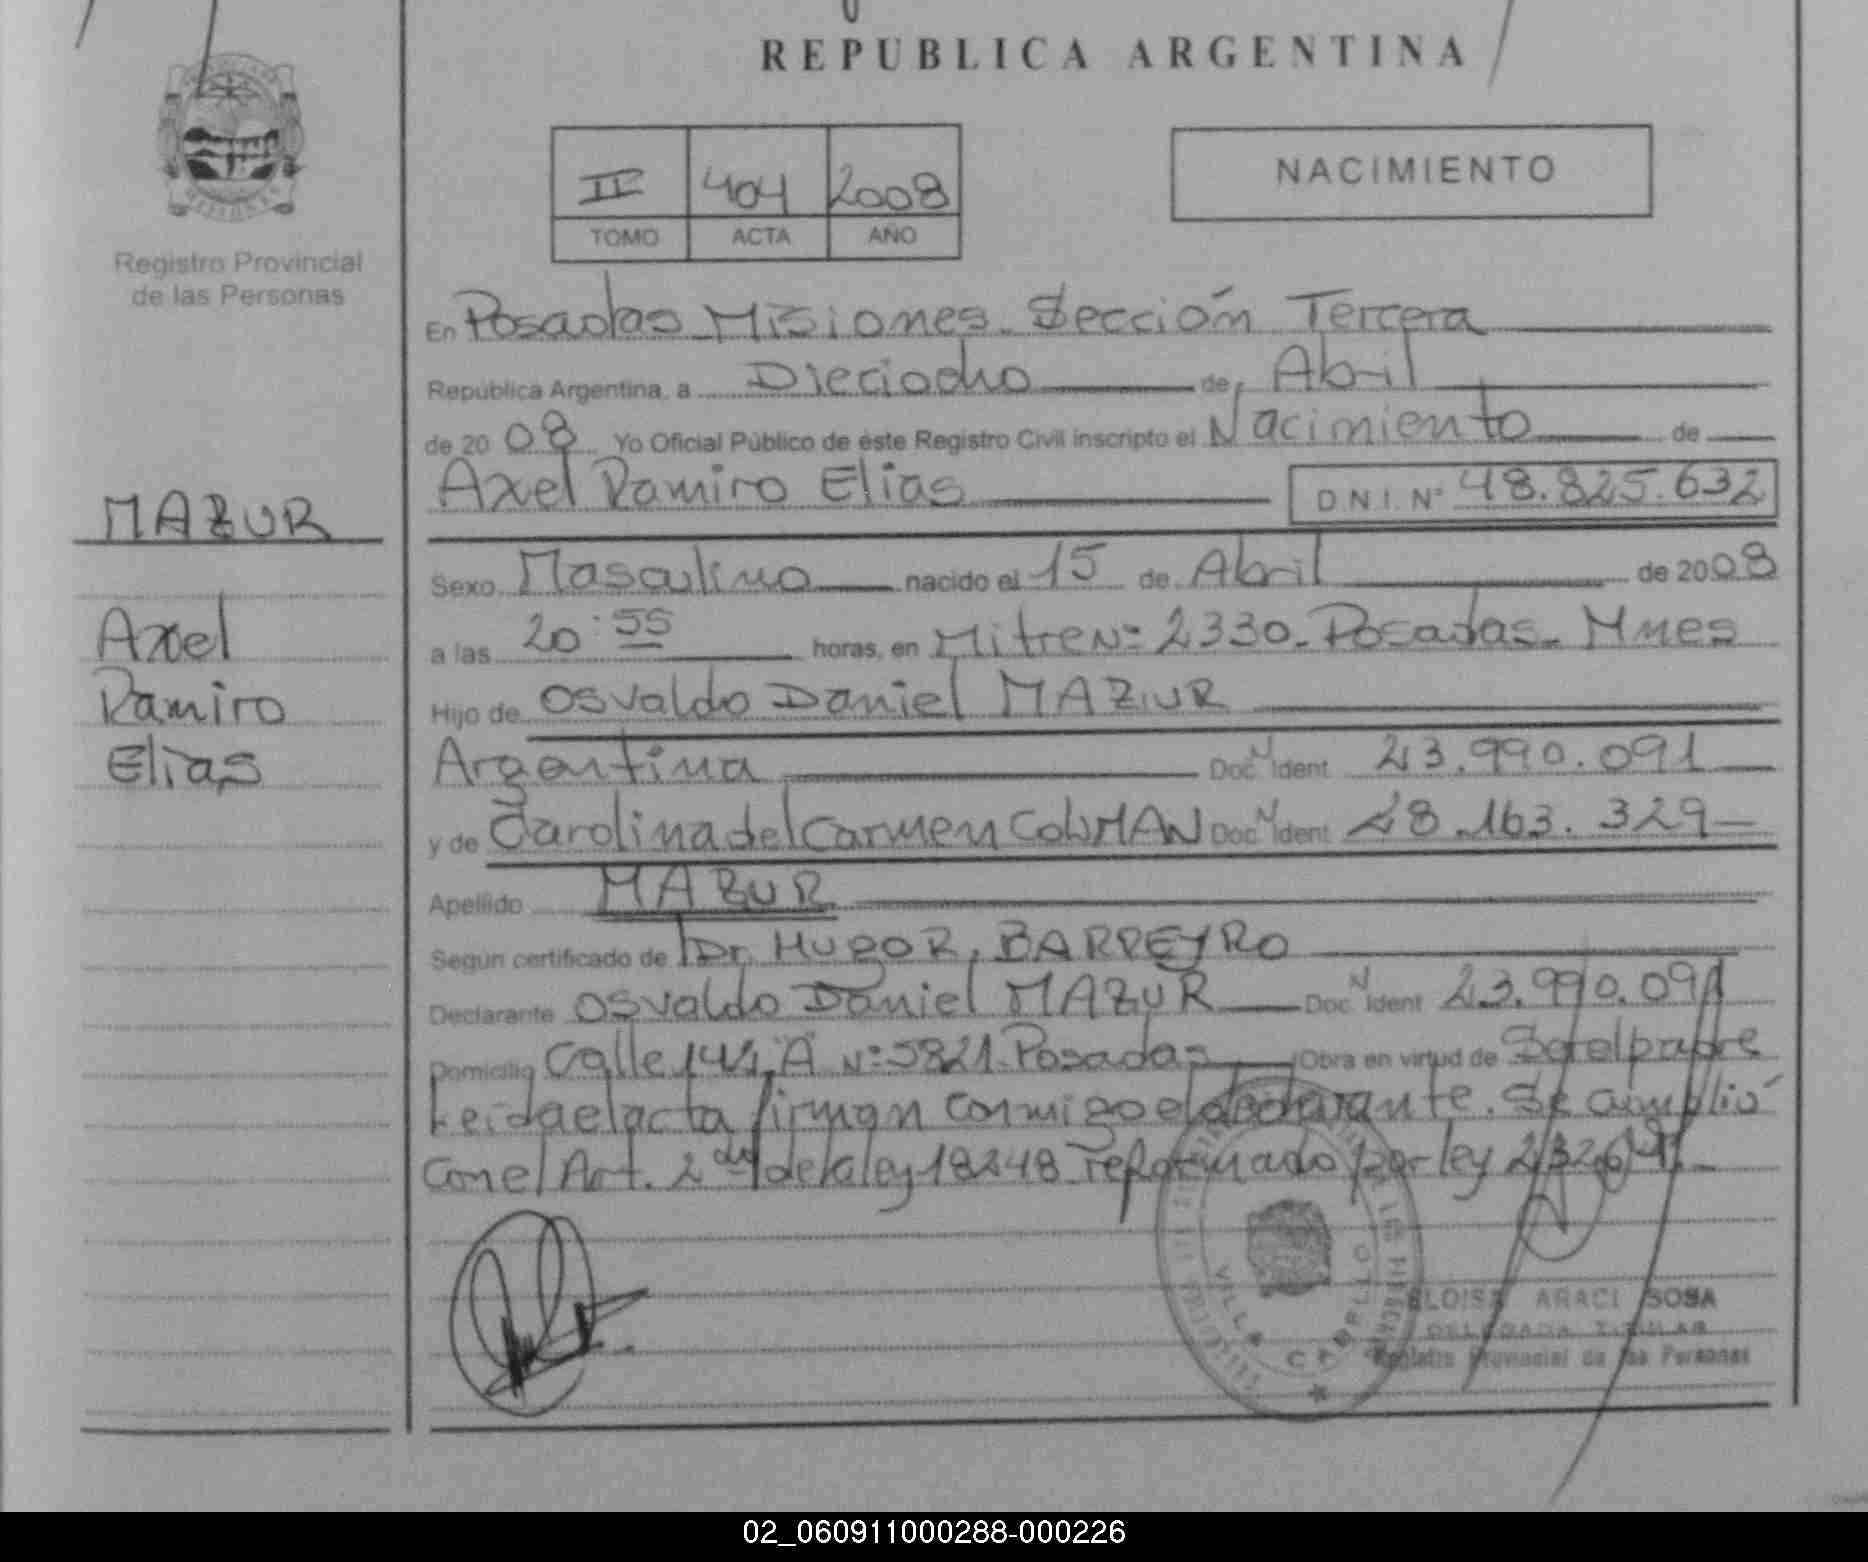 REPUBLICA ARGENTINA
NACIMIENTO
II 404 2008
TOMO ACTA AÑO
Registro Provincial
de las Personas
MAZUR
Axel
Ramiro
Elias
En Posadas Misiones. Sección Tercera
República Argentina, a Dieciocho de Abril
de 2008 Yo Oficial Público de éste Registro Civil inscripto el Nacimiento de
Axel Ramiro Elias D.N.I. Nº 48.825.632
Sexo Masculino nacido el 15 de Abril de 2008
a las 20:55 horas, en Mitre Nº 2330. Posadas. Mnes
Hijo de Osvaldo Daniel MAZUR
Argentina Doc. N Ident 23.990.091
y de Carolina del Carmen COLMAN Doc. N Ident 28.163.329
Apellido MAZUR
Según certificado de Dr. HUGO R. BARREYRO
Declarante Osvaldo Daniel MAZUR Doc. N Ident 23.990.091
Domicilio Calle 144 "A" Nº 5821. Posadas Obra en virtud de Ser el padre
Leida el acta firman conmigo el declarante. Se cumplió
con el Art. 2do de la ley 18248 reformado por ley 23264.
VILLA CABELLO
ELOISA ARACI SOSA
DELEGADA TITULAR
Registro Provincial de las Personas
02_060911000288-000226